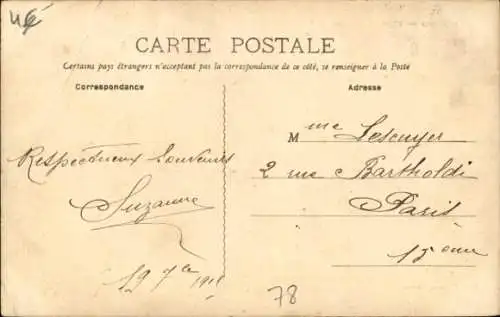 CARTE POSTALE
Certains pays étrangers n'acceptant pas la correspondance de ce côté, se renseigner à la Poste
Correspondance
Adresse
Respectueux Souvenirs
Suzanne
19 7bre
Mme Lescuyer
2 rue Bartholdi
Paris
15eme
78